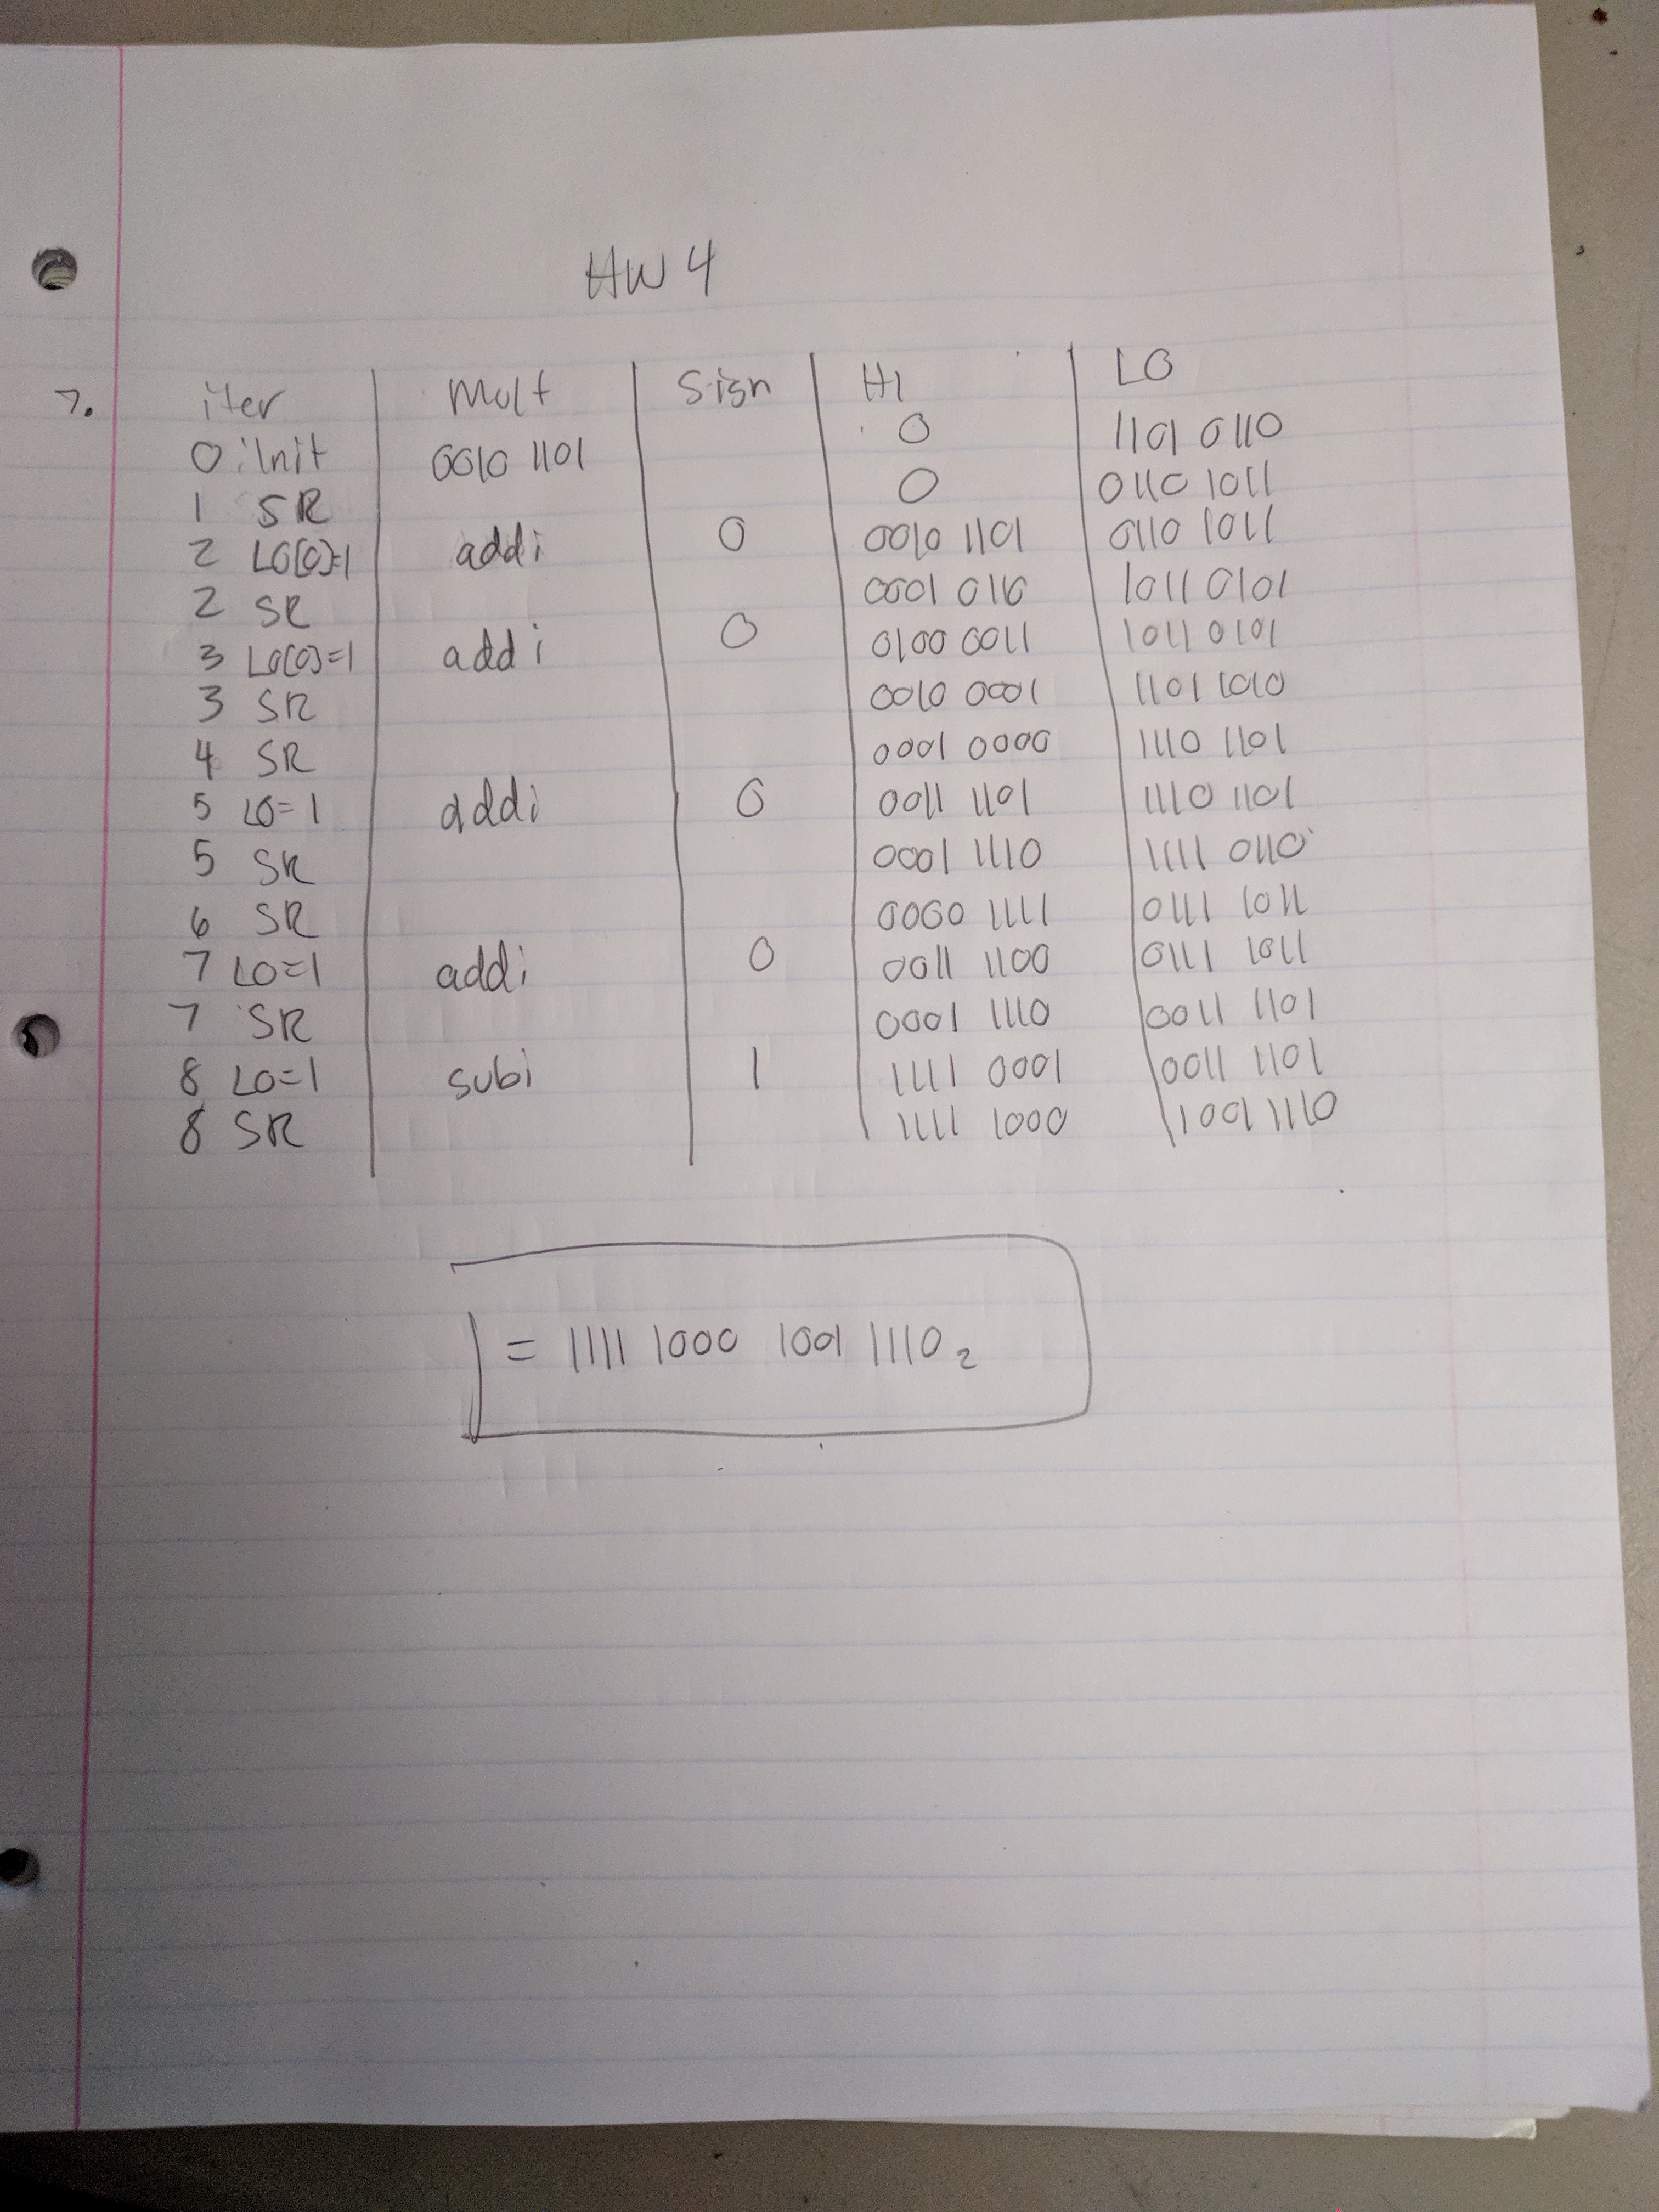 HW 4
7. iter | Mult | Sign | HI | LO
0: init | 0010 1101 | | 0 | 1101 0110
1 SR | | | 0 | 0110 1011
2 LO[0]=1 | addi | 0 | 0010 1101 | 0110 1011
2 SR | | | 0001 0110 | 1011 0101
3 LO[0]=1 | addi | 0 | 0100 0011 | 1011 0101
3 SR | | | 0010 0001 | 1101 1010
4 SR | | | 0001 0000 | 1110 1101
5 LO=1 | addi | 0 | 0011 1101 | 1110 1101
5 SR | | | 0001 1110 | 1111 0110
6 SR | | | 0000 1111 | 0111 1011
7 LO=1 | addi | 0 | 0011 1100 | 0111 1011
7 SR | | | 0001 1110 | 0011 1101
8 LO=1 | subi | 1 | 1111 0001 | 0011 1101
8 SR | | | 1111 1000 | 1001 1110
= 1111 1000 1001 1110₂